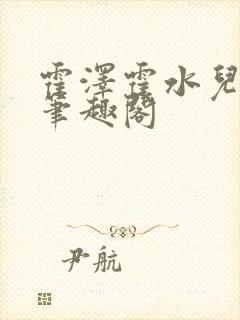 霍澤霍水兒
筆趣閣
尹航